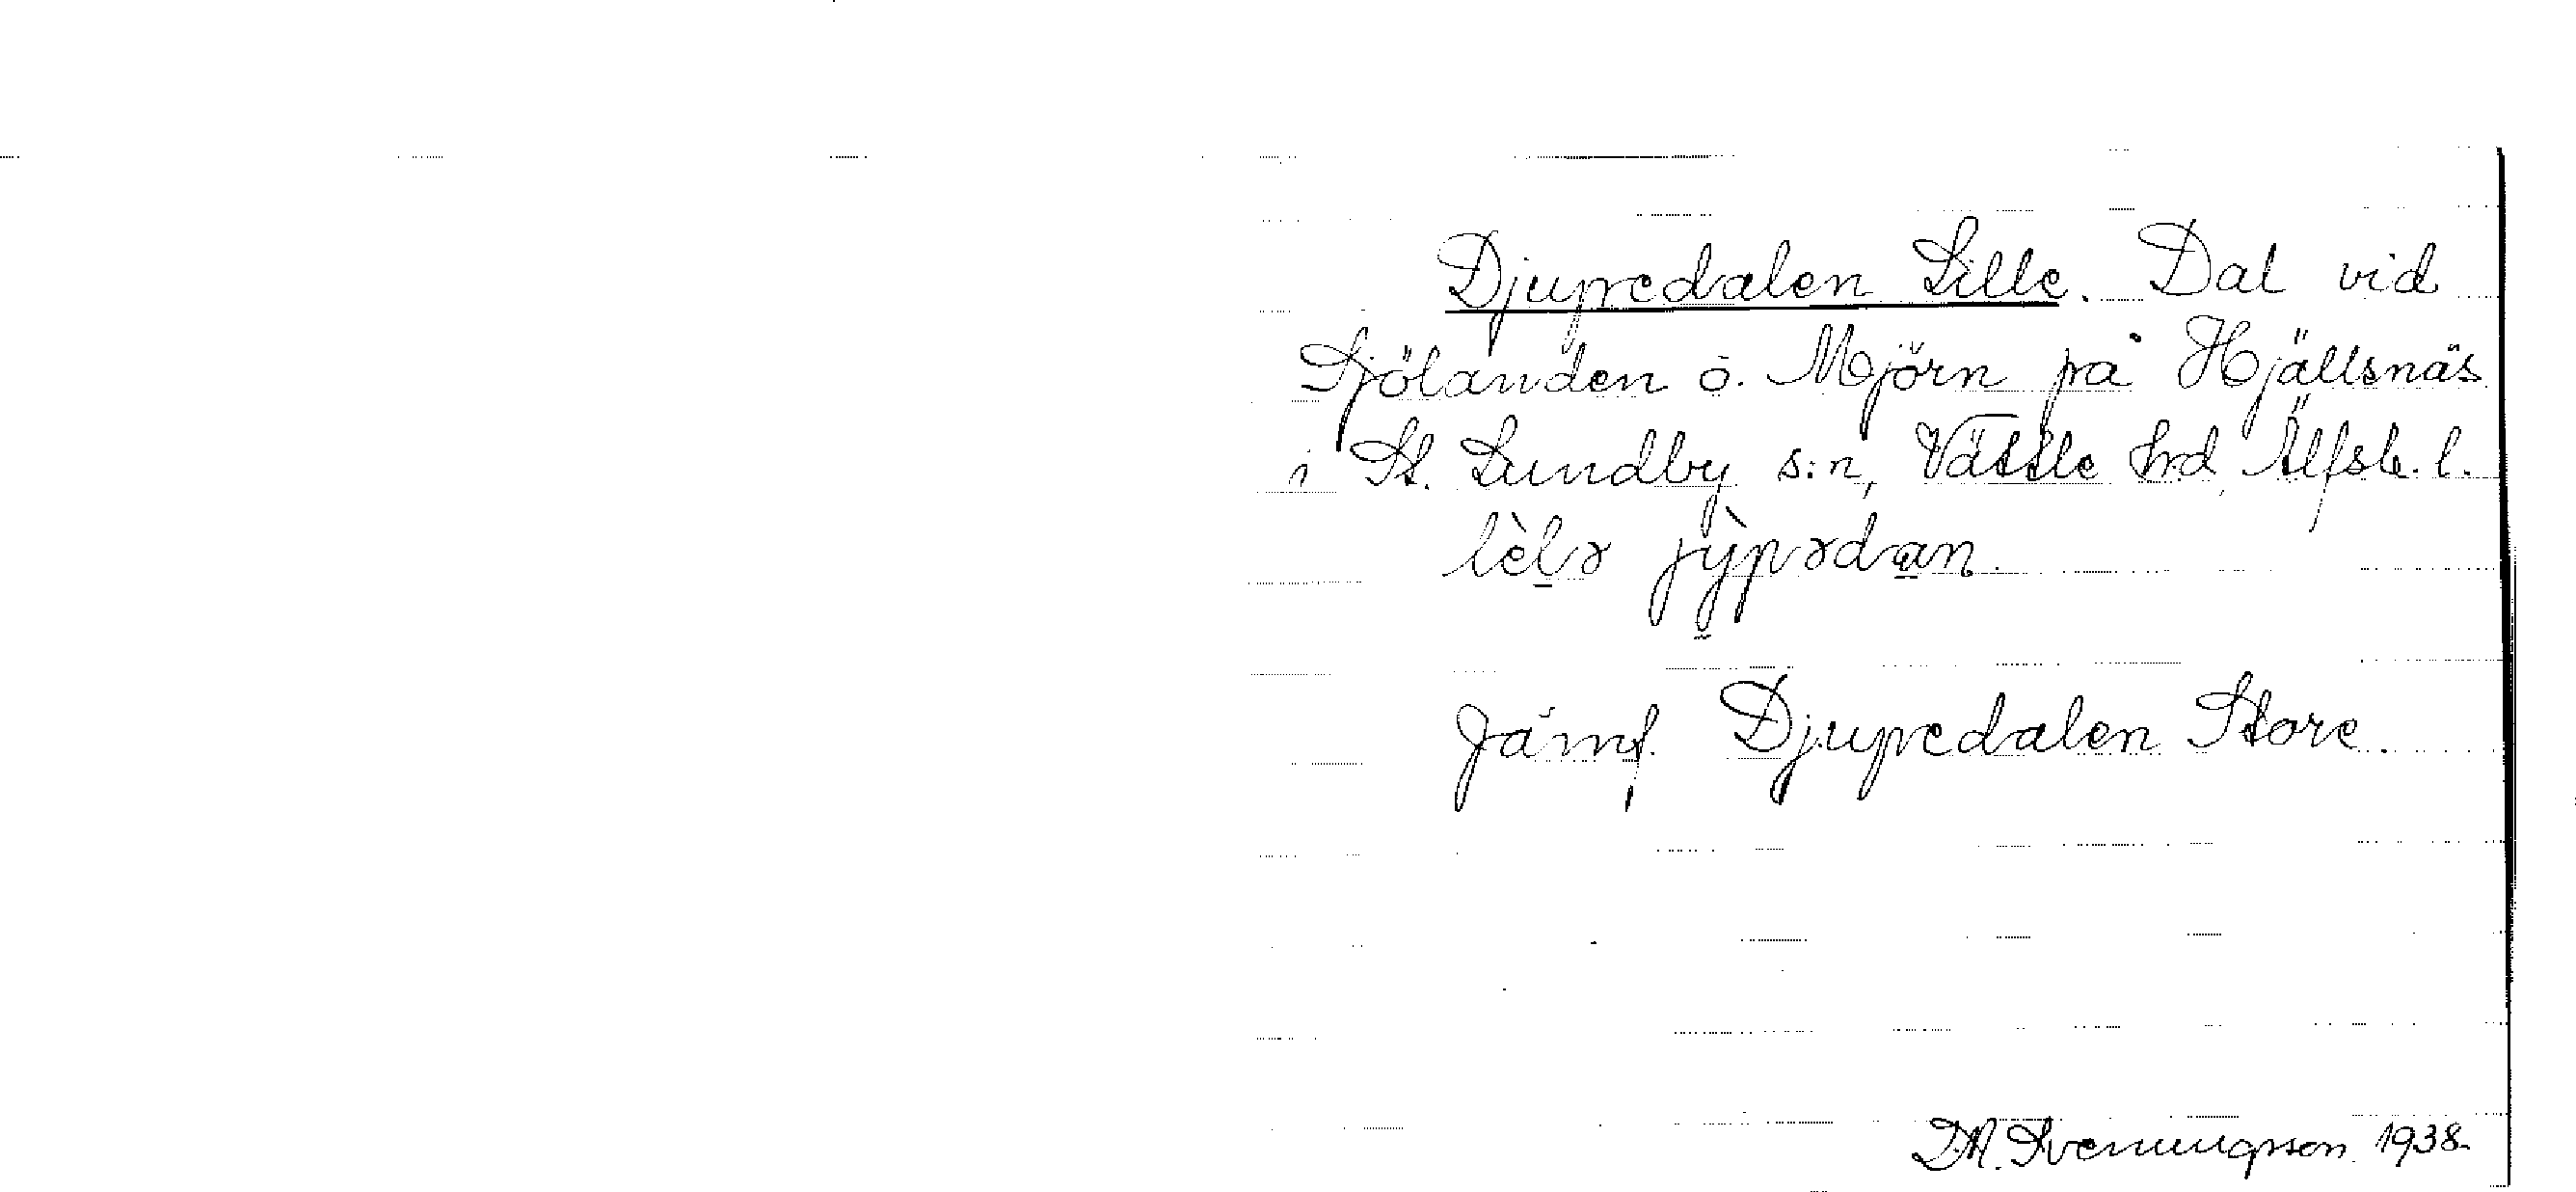 Djupedalen Lille. Dal vid
Sjölanden ö. Mjörn på Hjällsnäs
i St. Lundby s:n, Vättle hrd, Älfsb. l.
lèlə jỳpədan.
Jämf. Djupedalen Store.
D.A. Svenningsson 1938.